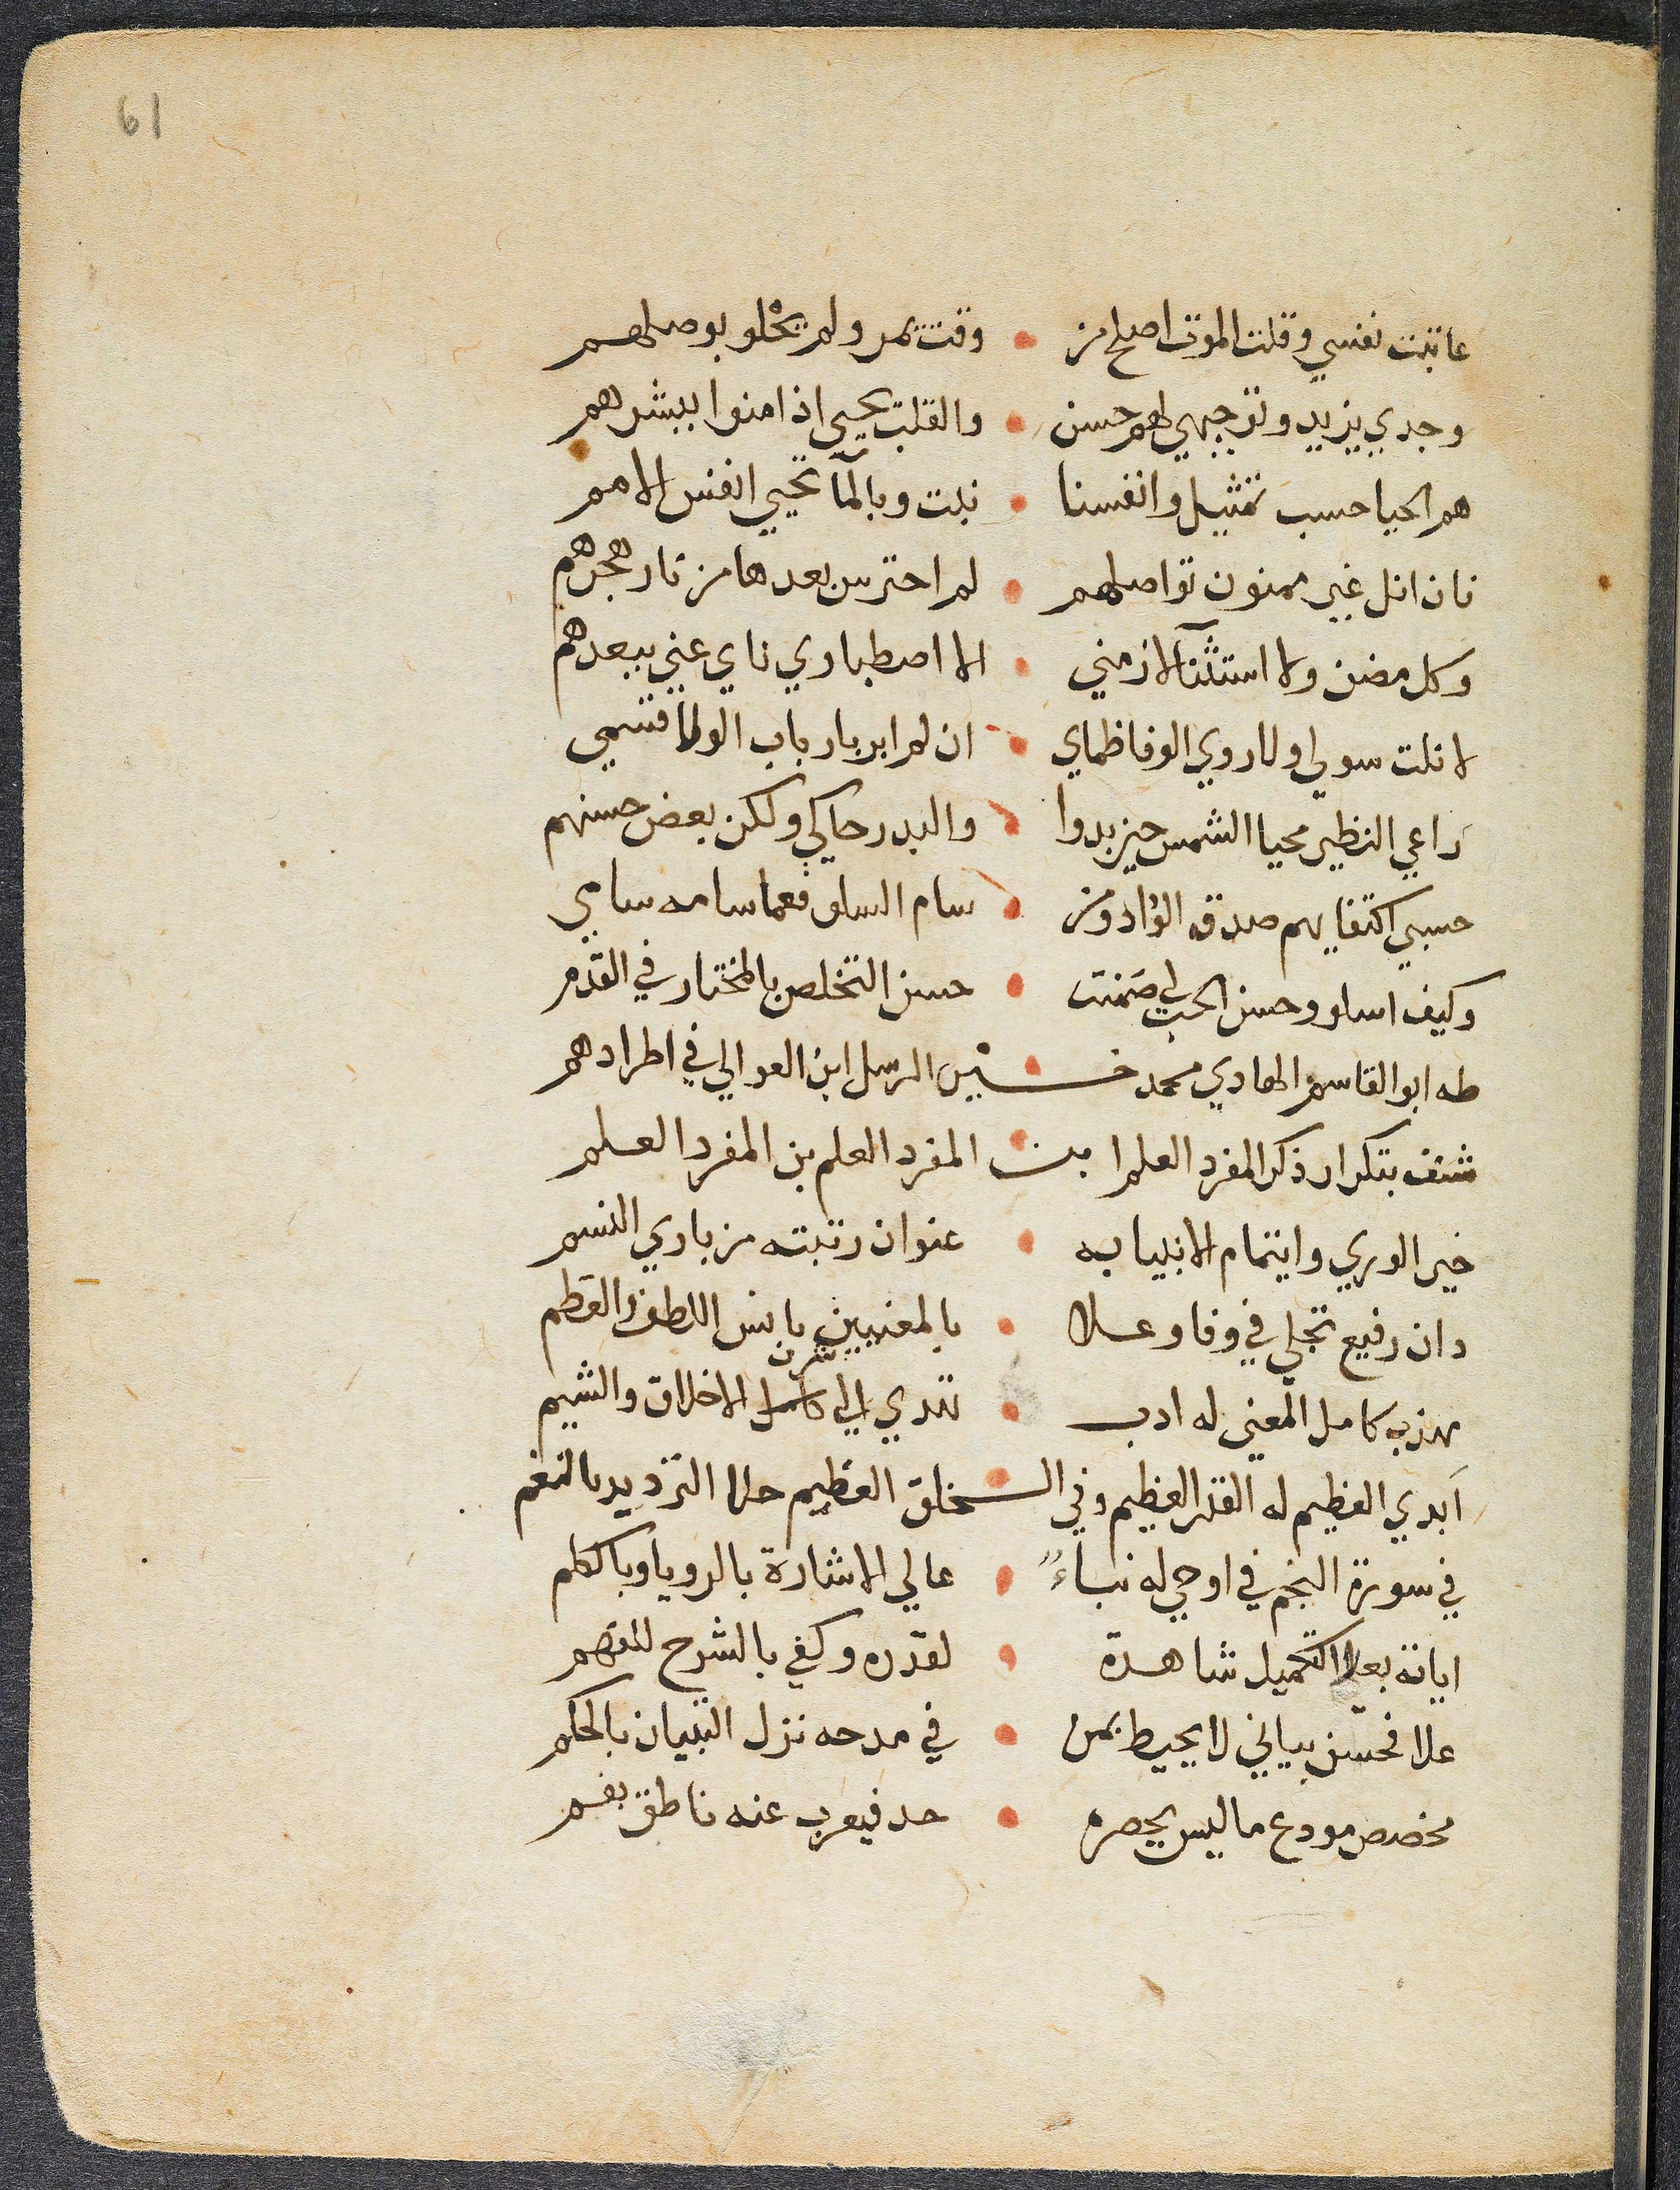 61
عاتبت نفسي وقلت الموت اصلح من • وقت يمر ولم يحلو بوصلهم
وجدي يزيد وتوجيهي لهم حسن • والقلب يحيي اذ امنوا ببشرهم
هم الحيا حسب تمثيل وانفسنا • نبت وبالمآ تحيي انفس الامم
فان انل غير ممنون تواصلهم • لم احترس بعدها من نار هجرهم
وكل مضن ولا استثنآ لازمني • الا اصطباري ناي عني ببعدهم
لا نلت سولي ولا روي الوفا ظماي • ان لم ابر بارباب الولا قسمي
راعي النظير محيا الشمس حين بدوا • والبدر حاكي ولكن بعض حسنهم
حسبي اكتفا بهم صدق الوداد ومن • سام السلو فعما سامه سامي
وكيف اسلو وحسن الحب لي ضمنت • حسن التخلص بالمختار في القدم
طه ابو القاسم الهادي محمد خـــير الرسل ابن العوالي في اطرادهم
شنف بتكرار ذكر المفرد العلم ابن المفرد العلم بن المفرد العلم
خير الوري وايتمام الانبيا به • عنوان رتبته من باري النسم
دان رفيع تجلي في وفا وعلا • بالمعنيين بانس اللطف والعظم
مهذب كامل المعني له ادب • تندي الي شرف الاخلاق والشيم
ابدي العظيم له القدر العظيم وفي الـــخلق العظيم حلا الترديد بالنغم
في سورة النجم في اوحي له نباء • عالي الاشارة بالرويا وبالكلم
اياته بعلا التكميل شاهدة • لقدره وكفي بالشرح للفهم
علا فحسن بياني لا يحيط بمن • في مدحه نزل التبيان بالحكم
مخصص مودع ما ليس يحصره • حد فيعرب عنه ناطق بفم